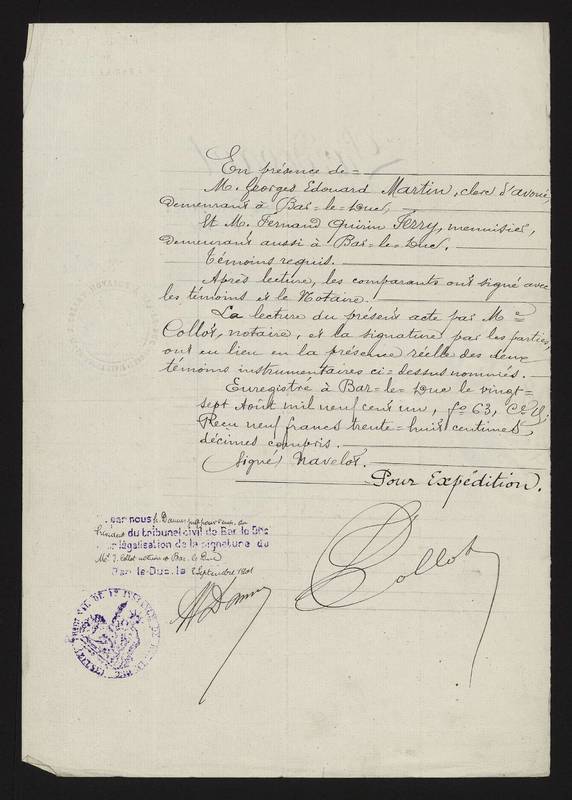 En présence de=
M. Georges Edouard Martin, clerc d'avoué,
Demeurant à Bar=le=Duc,
Et M. Fernand Quirin Ferry, menuisier,
Demeurant aussi à Bar=le=Duc.
Témoins requis.
Après lecture, les comparants ont signé avec
les témoins et le Notaire.
La lecture du présent acte par Me
Collot, notaire, et la signature par les parties,
ont eu lieu en la présence réelle des deux
témoins instrumentaires ci=dessus nommés.
Enregistré à Bar=le=Duc le vingt=
sept Août mil neuf cent un, fo 63, Ce
Reçu neuf francs trente=huit centimes,
décimes compris.
Signé Navelot.
Pour Expédition.
Collot
par nous
Président du tribunal civil de Bar-le-Duc
pour légalisation de la signature de
Me Collot notaire à Bar-le-Duc
Bar-le-Duc, le 2 Septembre 1901